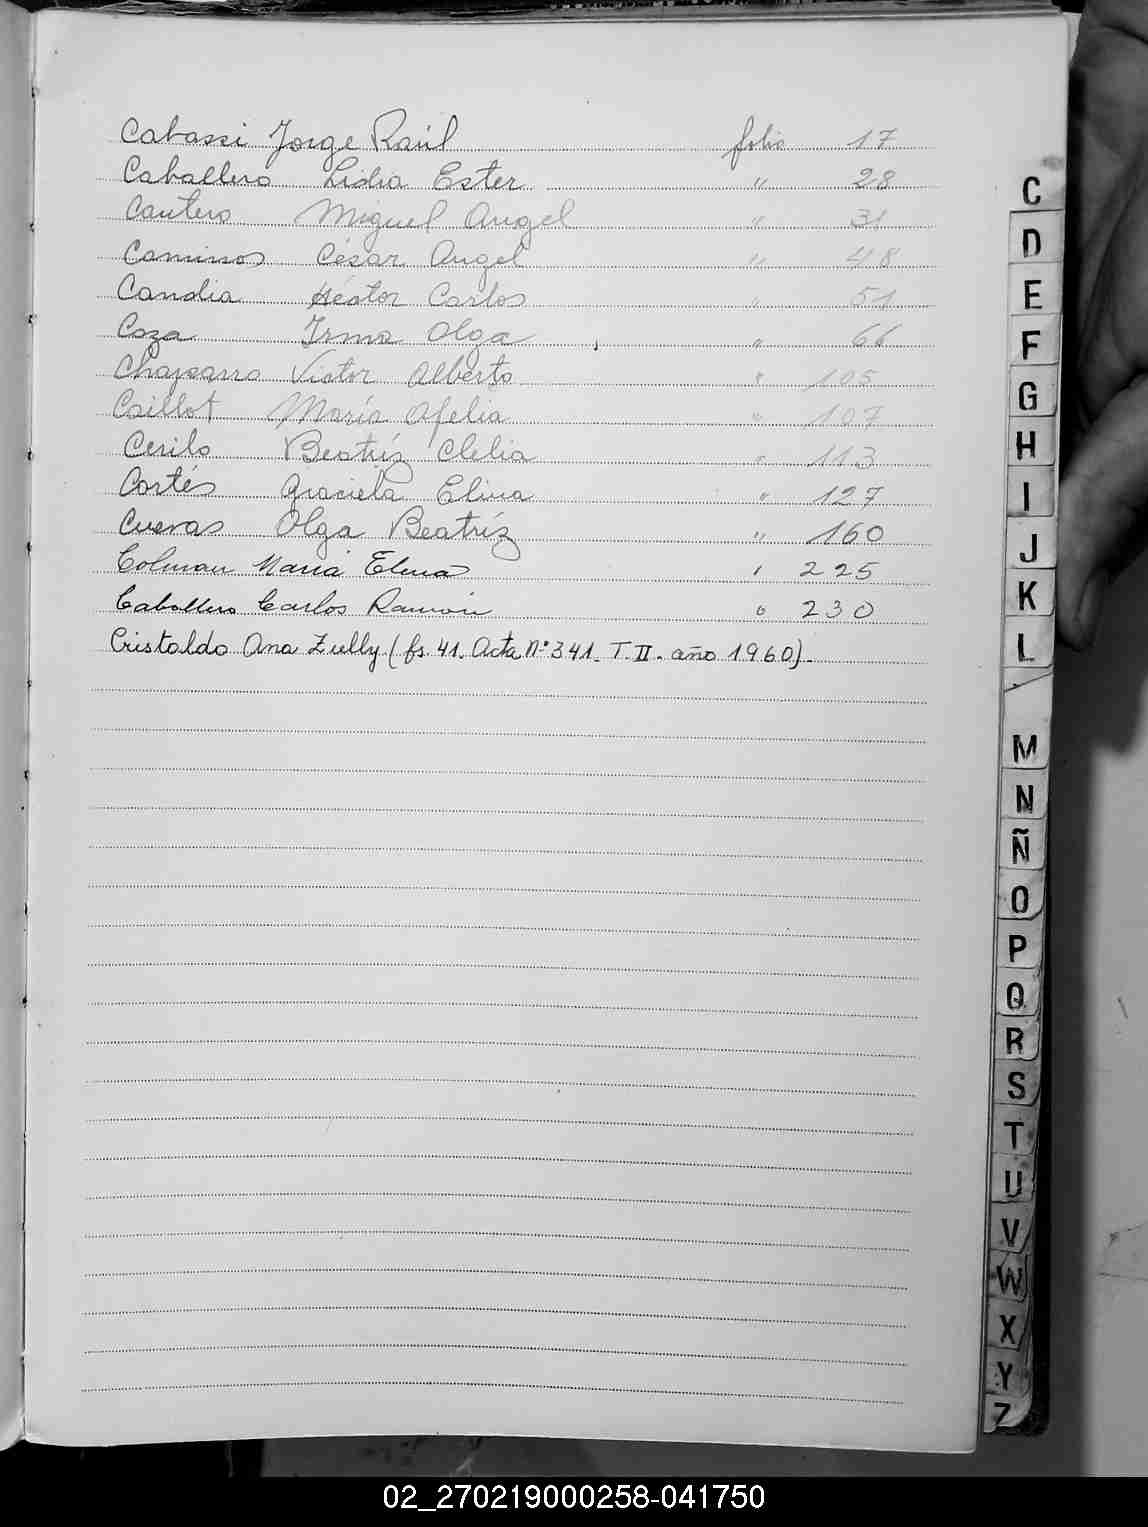 Cabassi Jorge Raúl folio 17
Caballero Lidia Ester " 28
Cantero Miguel Angel " 31
Caminos César Angel " 48
Candia Héctor Carlos " 51
Coza Irma Olga " 66
Chaparro Victor Alberto " 105
Caillot María Ofelia " 107
Cerilo Beatríz Clelia " 113
Cortés Graciela Elina " 127
Cuevas Olga Beatríz " 160
Colman Maria Elena " 225
Caballero Carlos Ramón " 230
Cristaldo Ana Zully (fs. 41. Acta Nº 341. T. II. año 1960).
C
D
E
F
G
H
I
J
K
L
M
N
Ñ
O
P
Q
R
S
T
U
V
W
X
Y
Z
02_270219000258-041750